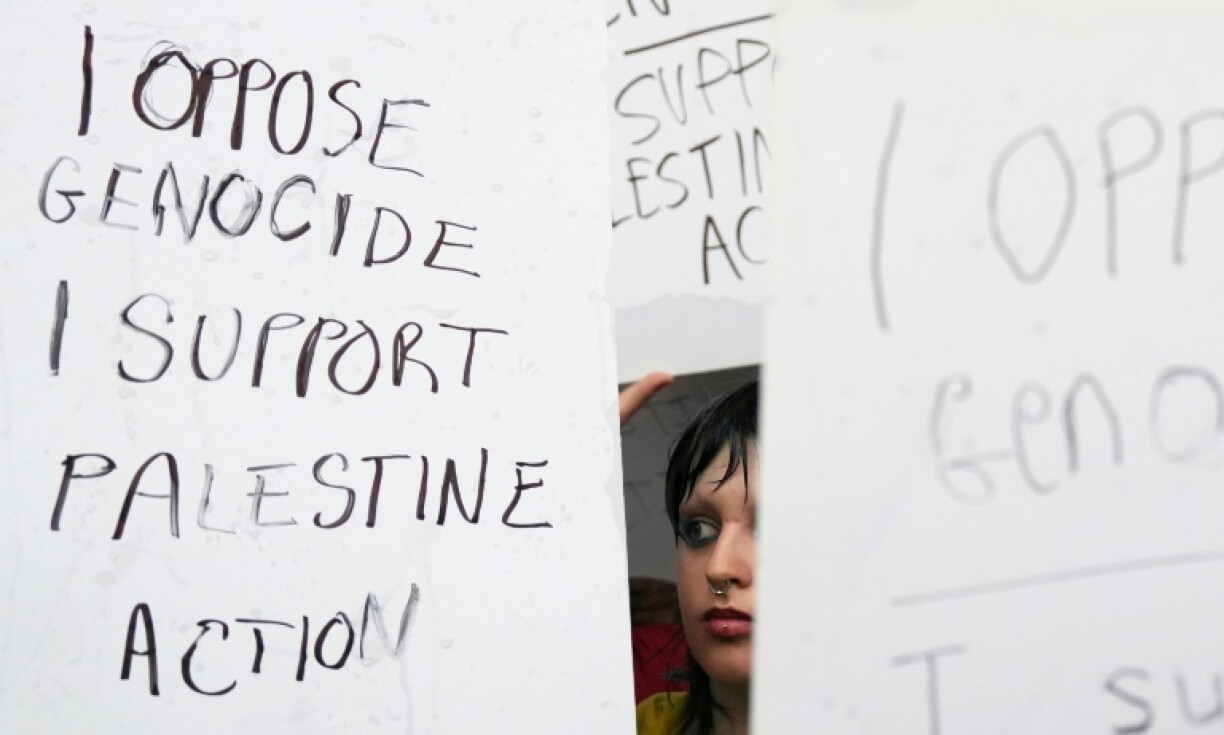 I OPPOSE
GENOCIDE
I SUPPORT
PALESTINE
ACTION
SUPP
LESTIN
AC
I OPP
GENO
I su